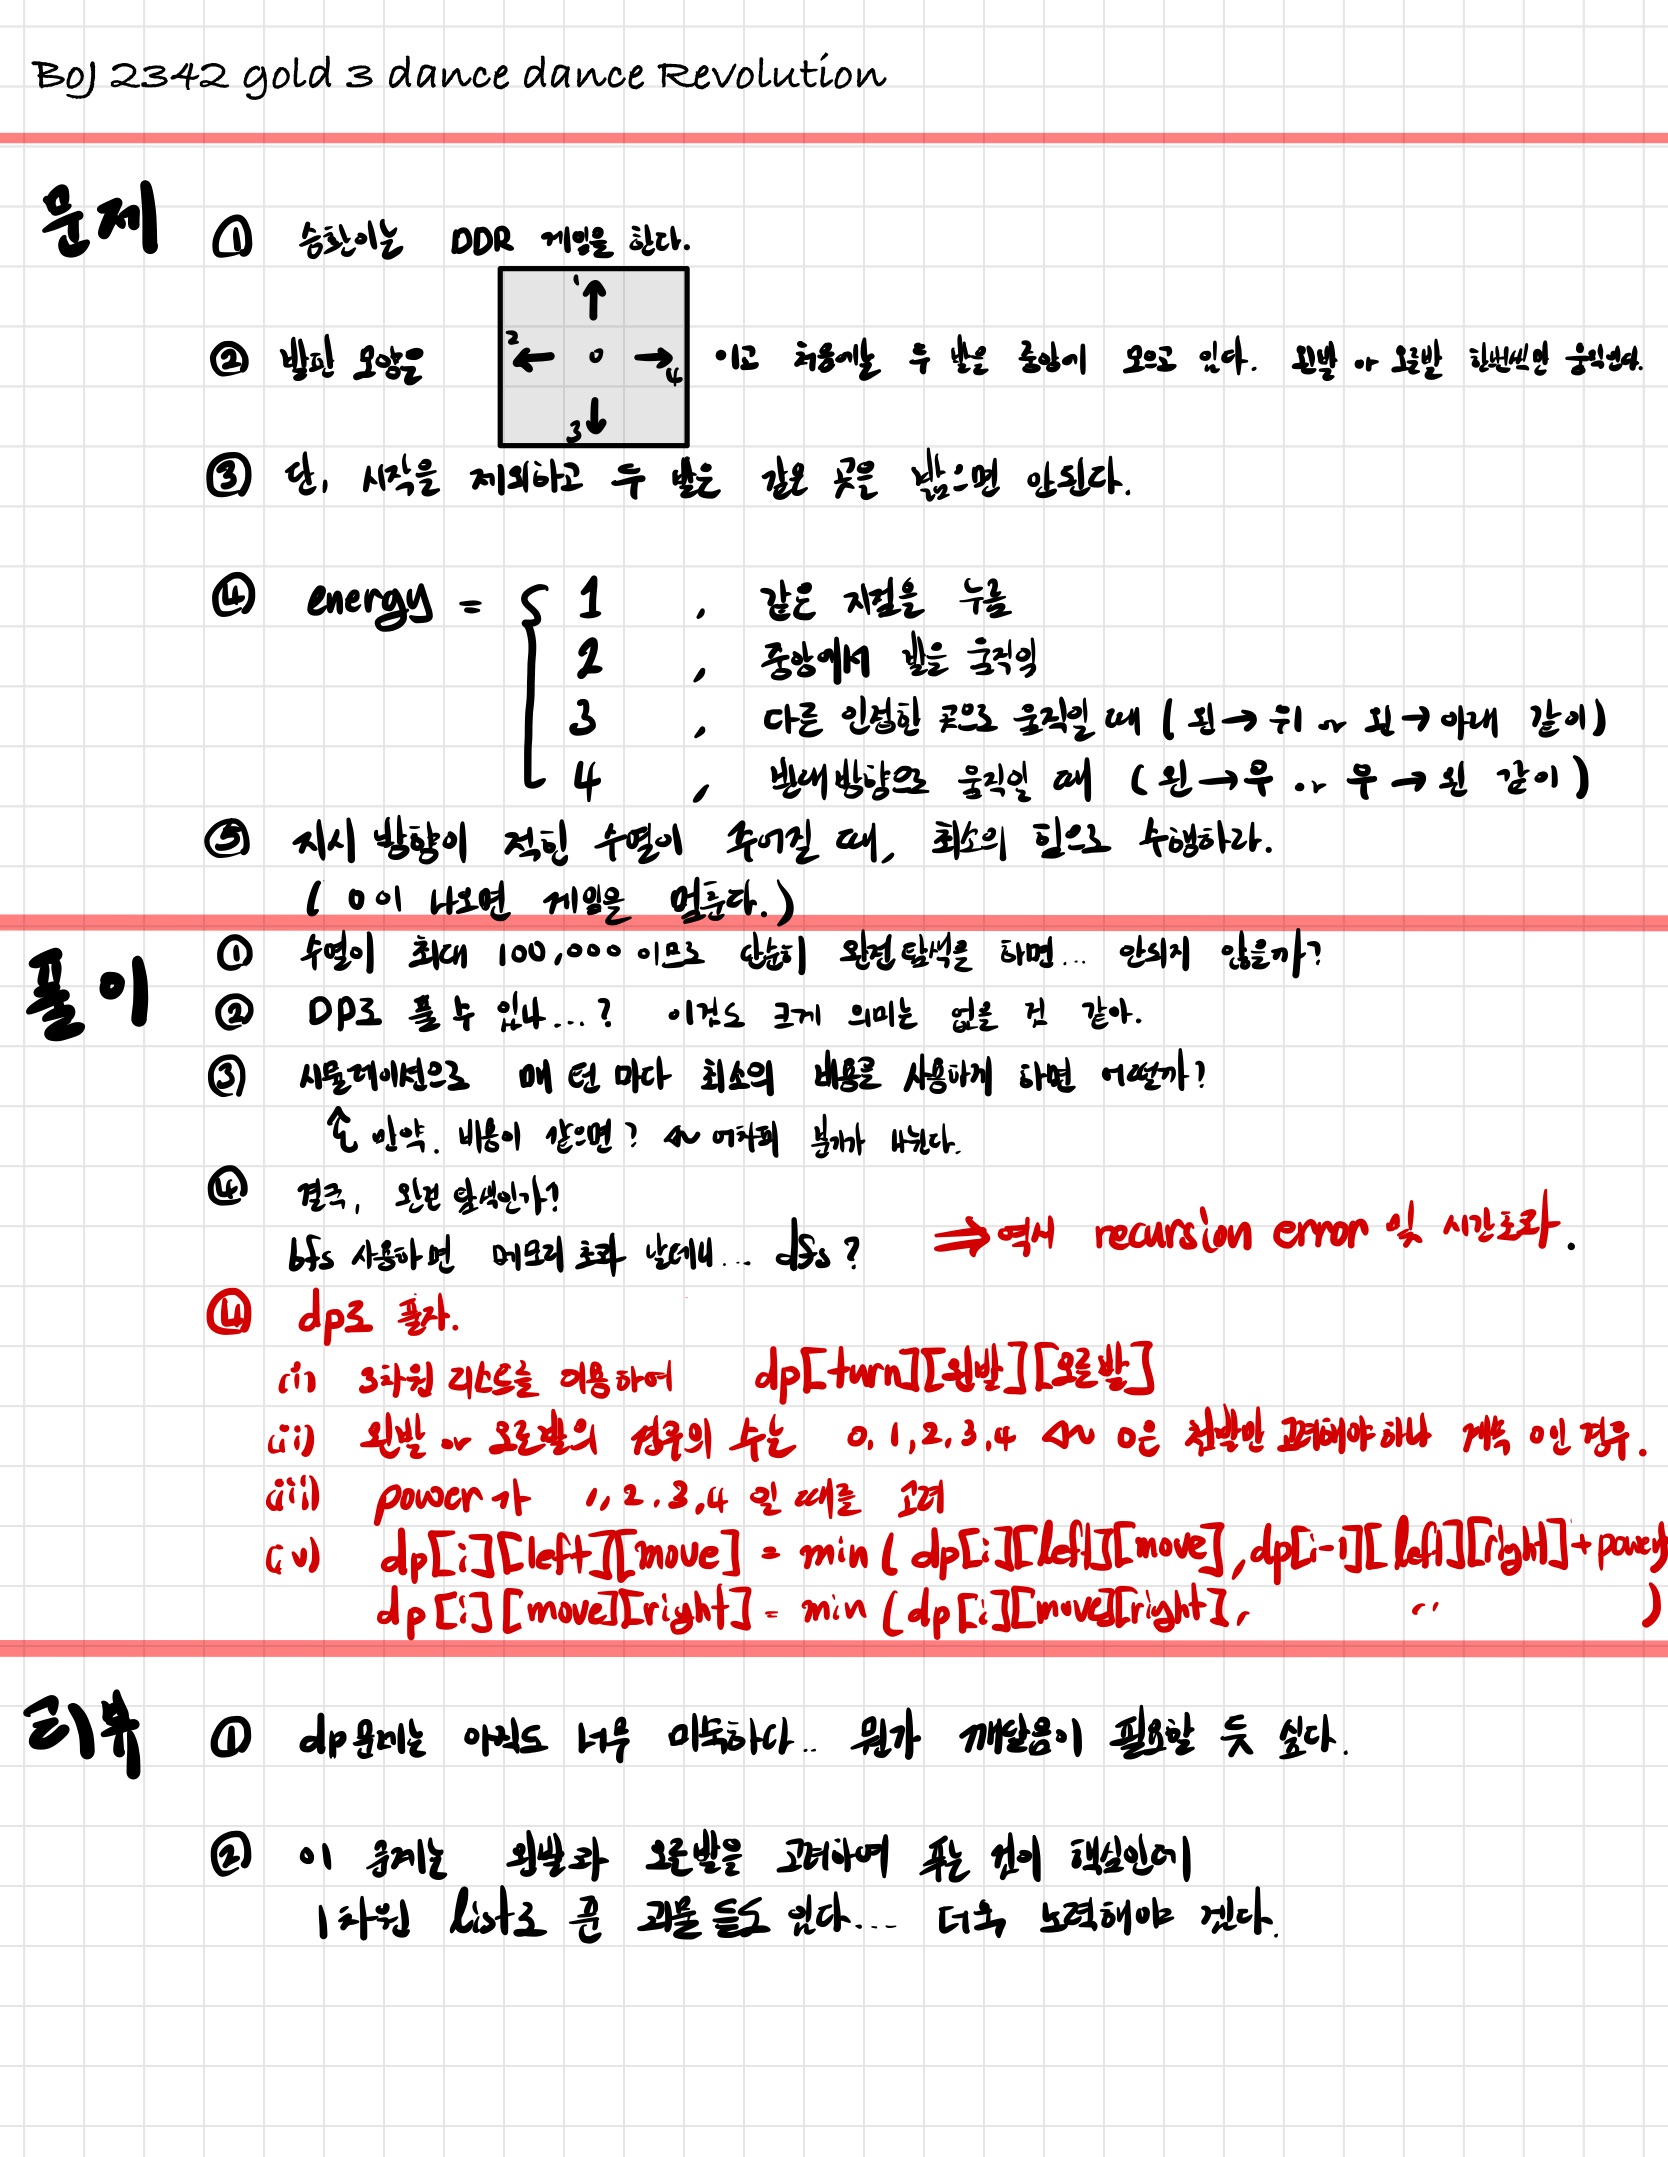 BOJ 2342 gold 3 dance dance Revolution
문제
① 승환이는 DDR 게임을 한다.
1
② 발판 모양은 2 ← 0 → 4 이고 처음에는 두 발을 중앙에 모으고 있다. 왼발 or 오른발 한번씩만 움직인다.
3
③ 단, 시작을 제외하고 두 발은 같은 곳을 밟으면 안된다.
④ energy = { 1 , 같은 지점을 누름
2 , 중앙에서 발을 움직임
3 , 다른 인접한 곳으로 움직일 때 ( 왼→위 or 왼→아래 같이)
4 , 반대방향으로 움직일 때 ( 왼→우 or 우→왼 같이 )
⑤ 지시 방향이 적힌 수열이 주어질 때, 최소의 힘으로 수행하라.
( 0이 나오면 게임을 멈춘다.)
풀이
① 수열이 최대 100,000 이므로 단순히 완전탐색을 하면... 안되지 않을까?
② DP로 풀 수 있나...? 이것도 크게 의미는 없을 것 같아.
③ 시뮬레이션으로 매 턴 마다 최소의 비용을 사용하게 하면 어떨까?
만약. 비용이 같으면? 어차피 분기가 나뉜다.
④ 결국, 완전 탐색인가?
bfs 사용하면 메모리 초과 날테니... dfs? ⇒ 역시 recursion error 및 시간초과.
④ dp로 풀자.
(i) 3차원 리스트를 이용하여 dp[turn][왼발][오른발]
(ii) 왼발 or 오른발의 경우의 수는 0,1,2,3,4 0은 첫발만 고려해야하나 계속 0인 경우.
(iii) power가 1,2,3,4 일 때를 고려
(iv) dp[i][left][move] = min ( dp[i][left][move], dp[i-1][left][right]+power)
dp[i][move][right] = min ( dp[i][move][right], 〃 )
리뷰
① dp문제는 아직도 너무 미숙하다.. 뭔가 깨달음이 필요할 듯 싶다.
② 이 문제는 왼발과 오른발을 고려하여 푸는 것이 핵심인데
1차원 list로 푼 괴물들도 있다.... 더욱 노력해야 겠다.